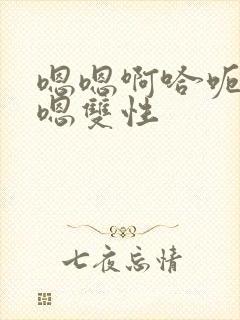 嗯嗯啊哈呃
嗯雙性
七夜忘情